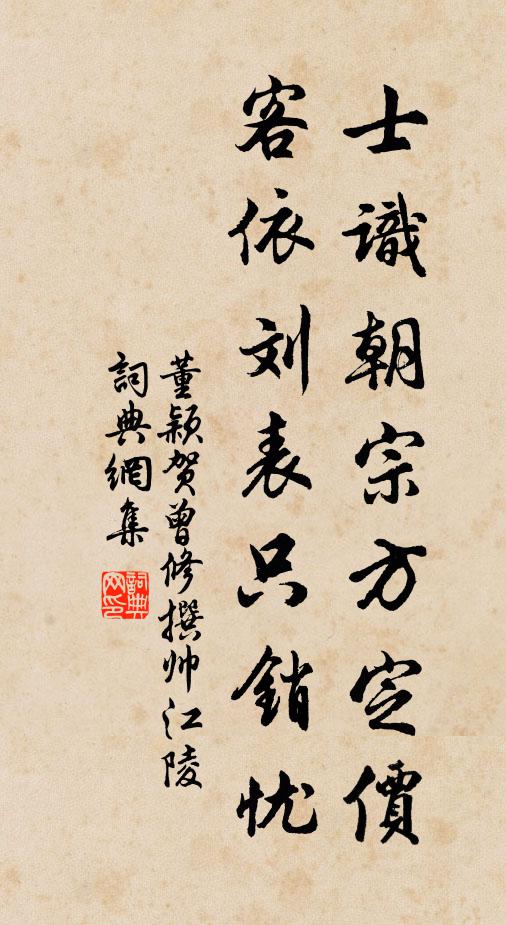 士識朝宗方定價
客依刘表只銷忧
董颖贺曾修撰帅江陵
詞典網集
詞典网印